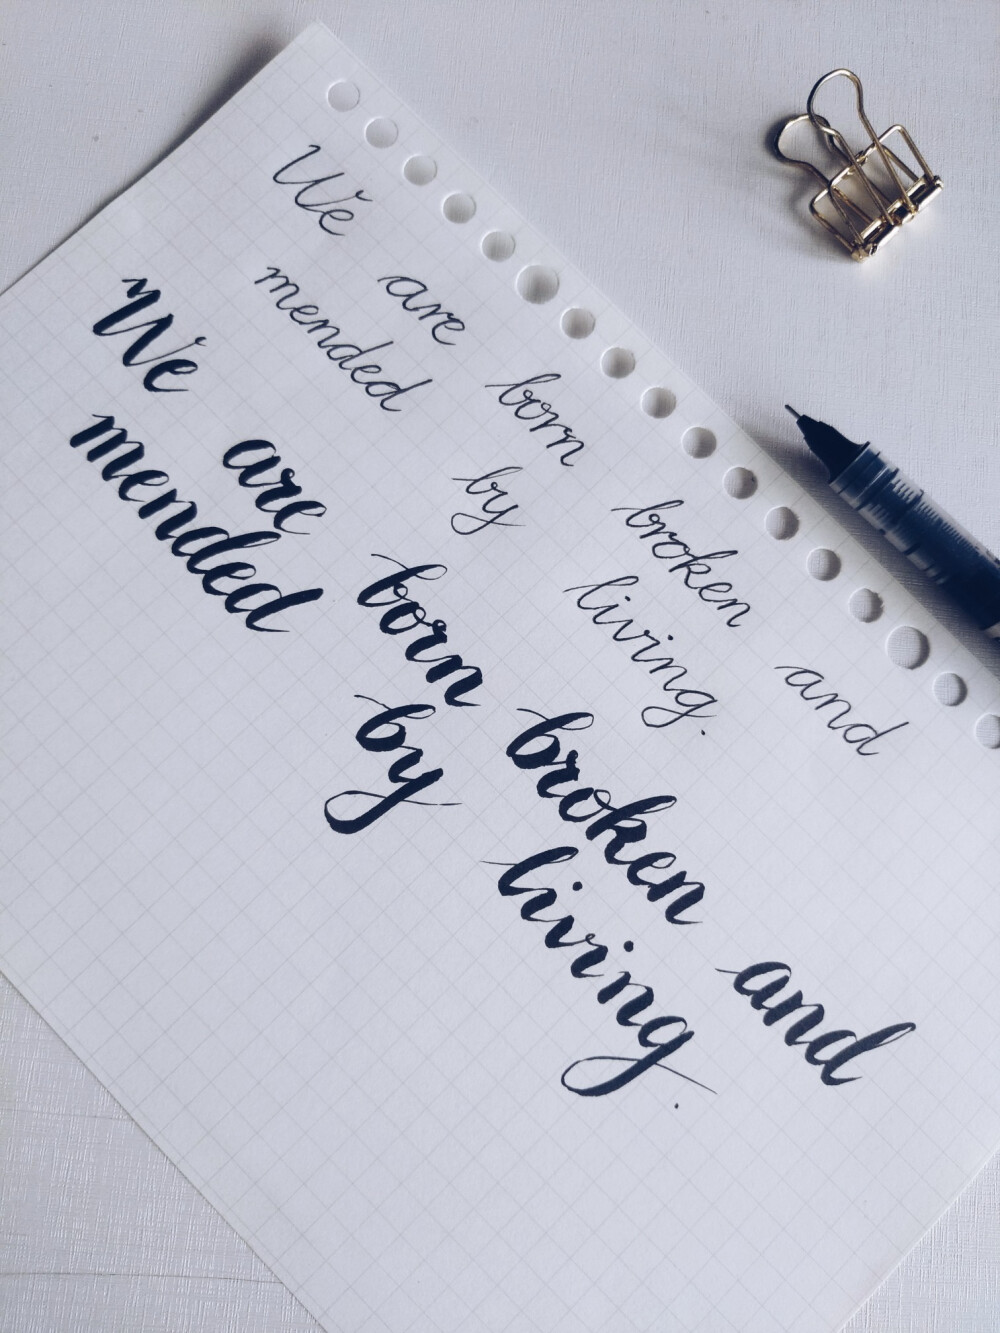 We are born broken and
mended by living.
We are born broken and
mended by living.